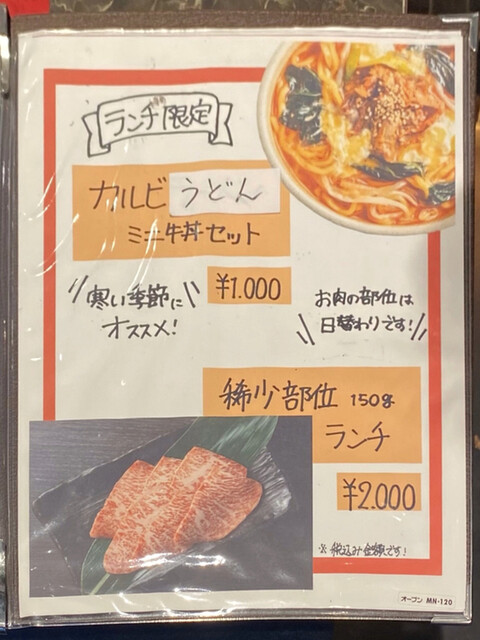 ランチ限定
カルビうどん
ミニ牛丼セット
¥1.000
寒い季節に
オススメ!
お肉の部位は
日替わりです!
稀少部位 150g
ランチ
¥2.000
※税込み金額です!
オープン MN-120